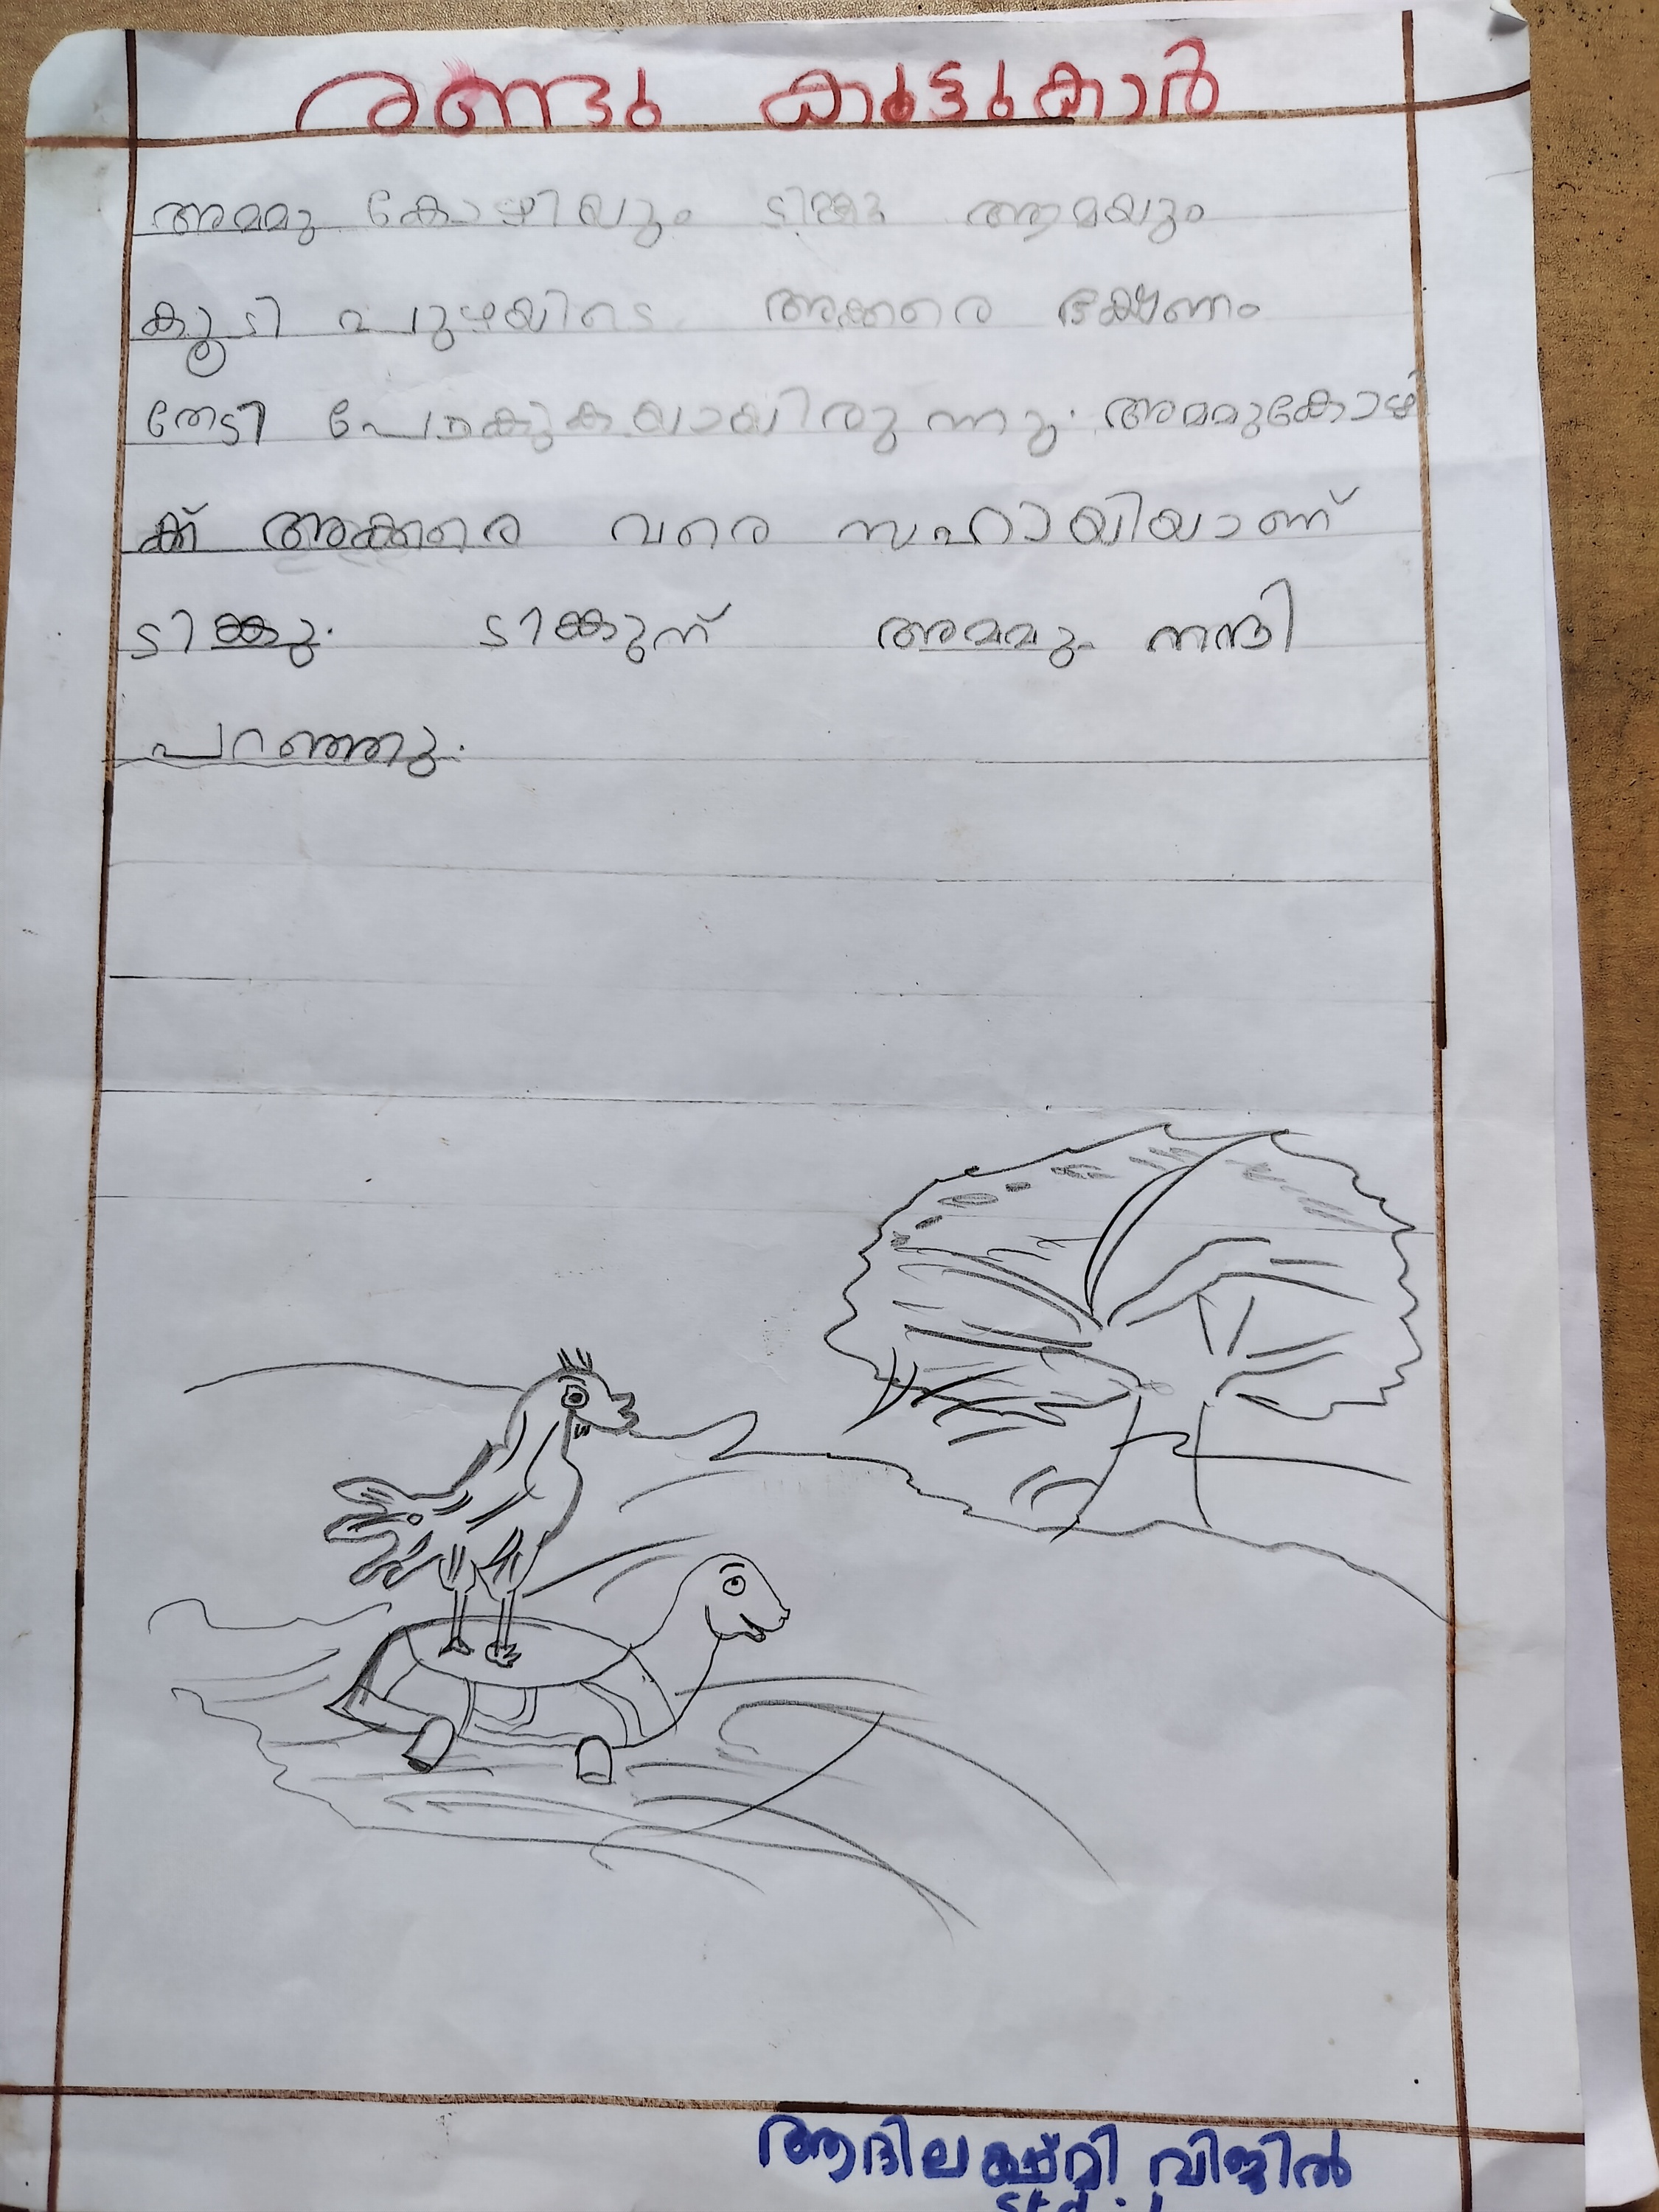 രണ്ടു കൂട്ടുകാർ
അമ്മു കോഴിയും ടിങ്കു ആമയും
കൂടി പുഴയിടെ അക്കരെ ഭക്ഷണം
തേടി പോകുകയായിരുന്നു. അമ്മുകോഴി
ക്ക് അക്കരെ വരെ സഹായിയാണ്
ടിങ്കു. ടിങ്കുന് അമ്മു നന്ദി
പറഞ്ഞു.
ആദിലക്ഷ്മി വിജിൽ